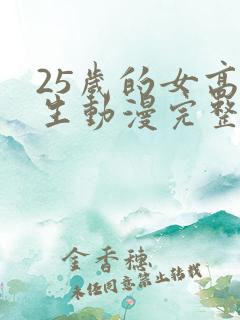 25歲的女高
生動漫完整
金香穗
未經同意禁止轉載